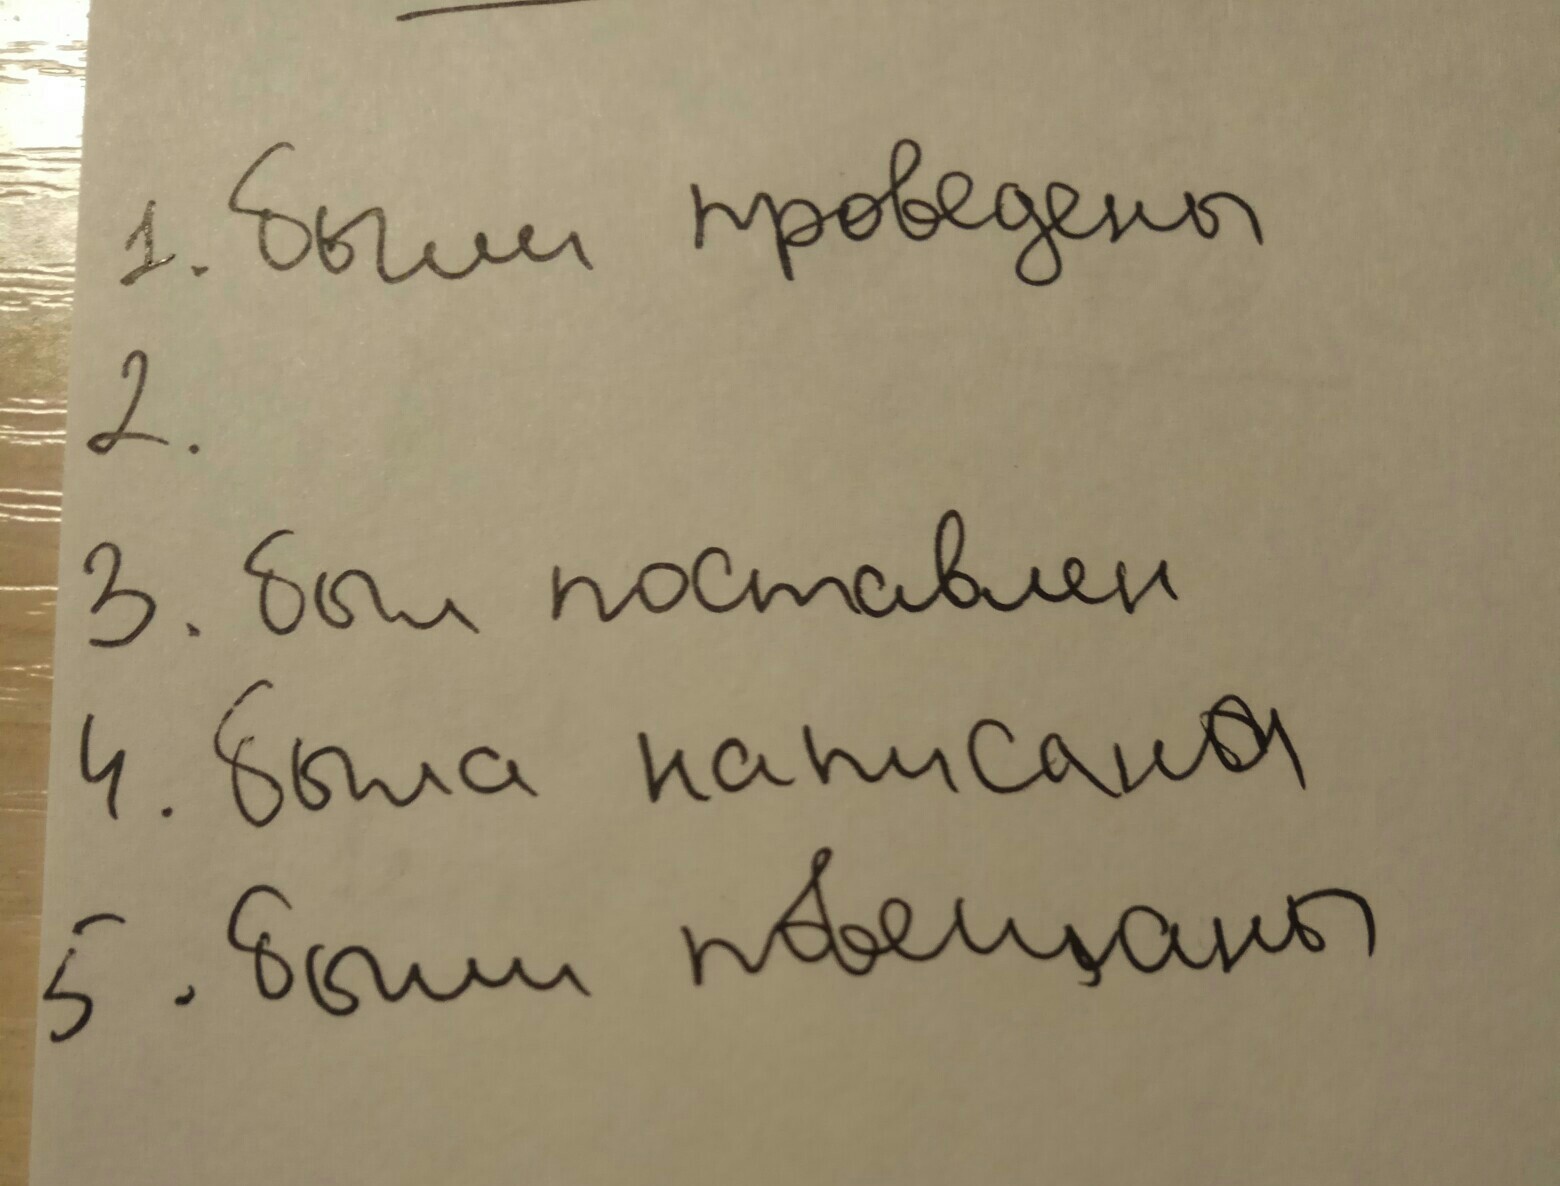 1. были проведены
2.
3. был поставлен
4. была написана
5. были